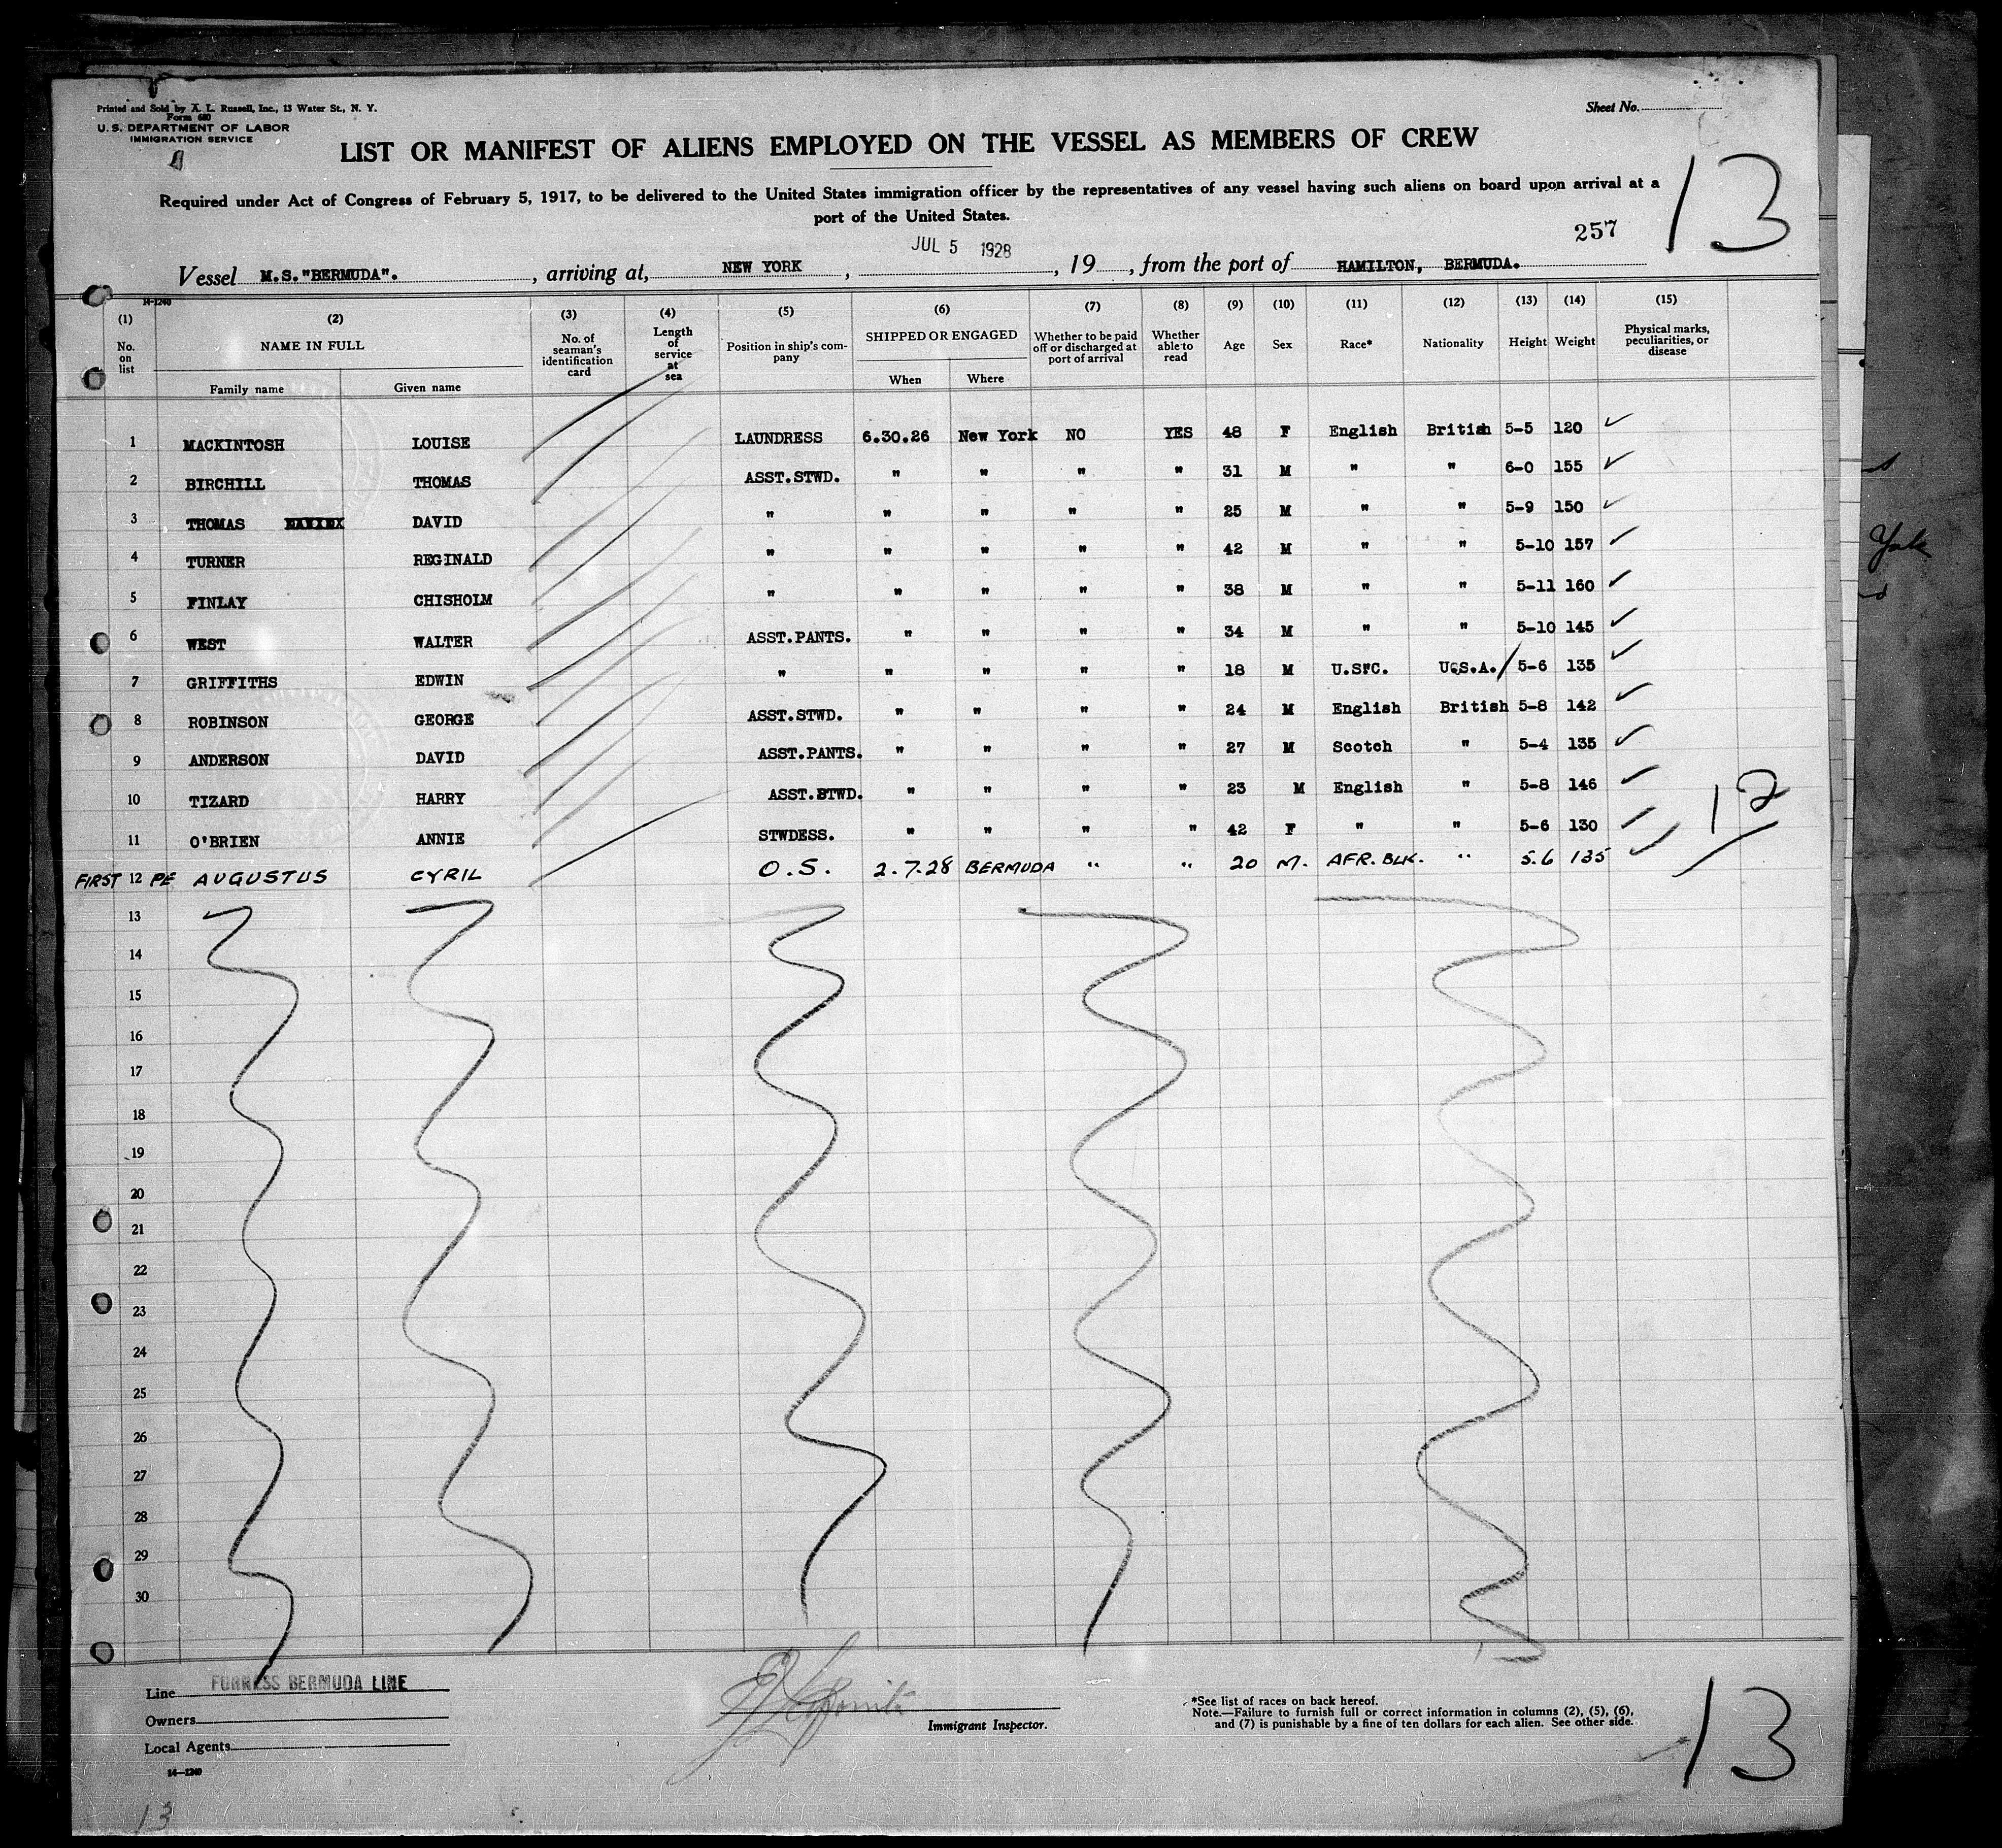 Printed and Sold by A. L. Russell, Inc., 13 Water St., N. Y.
Form 680
U. S. DEPARTMENT OF LABOR
IMMIGRATION SERVICE
Sheet No.
LIST OR MANIFEST OF ALIENS EMPLOYED ON THE VESSEL AS MEMBERS OF CREW
13
Required under Act of Congress of February 5, 1917, to be delivered to the United States immigration officer by the representatives of any vessel having such aliens on board upon arrival at a
port of the United States.
257
JUL 5 1928
Vessel M.S."BERMUDA". , arriving at, NEW YORK , , 19 , from the port of HAMILTON, BERMUDA.
14-1240
(1) (2) (3) (4) (5) (6) (7) (8) (9) (10) (11) (12) (13) (14) (15)
No. on list NAME IN FULL No. of seaman's identification card Length of service at sea Position in ship's company SHIPPED OR ENGAGED Whether to be paid off or discharged at port of arrival Whether able to read Age Sex Race* Nationality Height Weight Physical marks, peculiarities, or disease
Family name Given name When Where
1 MACKINTOSH LOUISE LAUNDRESS 6.30.26 New York NO YES 48 F English British 5-5 120 ✓
2 BIRCHILL THOMAS ASST.STWD. " " " " 31 M " " 6-0 155 ✓
3 THOMAS DAVID " " " " " 25 M " " 5-9 150 ✓
4 TURNER REGINALD " " " " " 42 M " " 5-10 157 ✓
5 FINLAY CHISHOLM " " " " " 38 M " " 5-11 160 ✓
6 WEST WALTER ASST.PANTS. " " " " 34 M " " 5-10 145 ✓
7 GRIFFITHS EDWIN " " " " " 18 M U.SFC. UQS.A. 5-6 135 ✓
8 ROBINSON GEORGE ASST.STWD. " " " " 24 M English British 5-8 142 ✓
9 ANDERSON DAVID ASST.PANTS. " " " " 27 M Scotch " 5-4 135 ✓
10 TIZARD HARRY ASST.BTWD. " " " " 23 M English " 5-8 146 ✓
12
11 O'BRIEN ANNIE STWDESS. " " " " 42 F " " 5-6 130 ✓
FIRST 12 PE AUGUSTUS CYRIL O.S. 2.7.28 BERMUDA " " 20 M. AFR. BLK. " 5.6 135 ✓
13
14
15
16
17
18
19
20
21
22
23
24
25
26
27
28
29
30
Line FURNESS BERMUDA LINE
Owners
Local Agents
14—1240
Immigrant Inspector.
*See list of races on back hereof.
Note.—Failure to furnish full or correct information in columns (2), (5), (6),
and (7) is punishable by a fine of ten dollars for each alien. See other side.
13
13